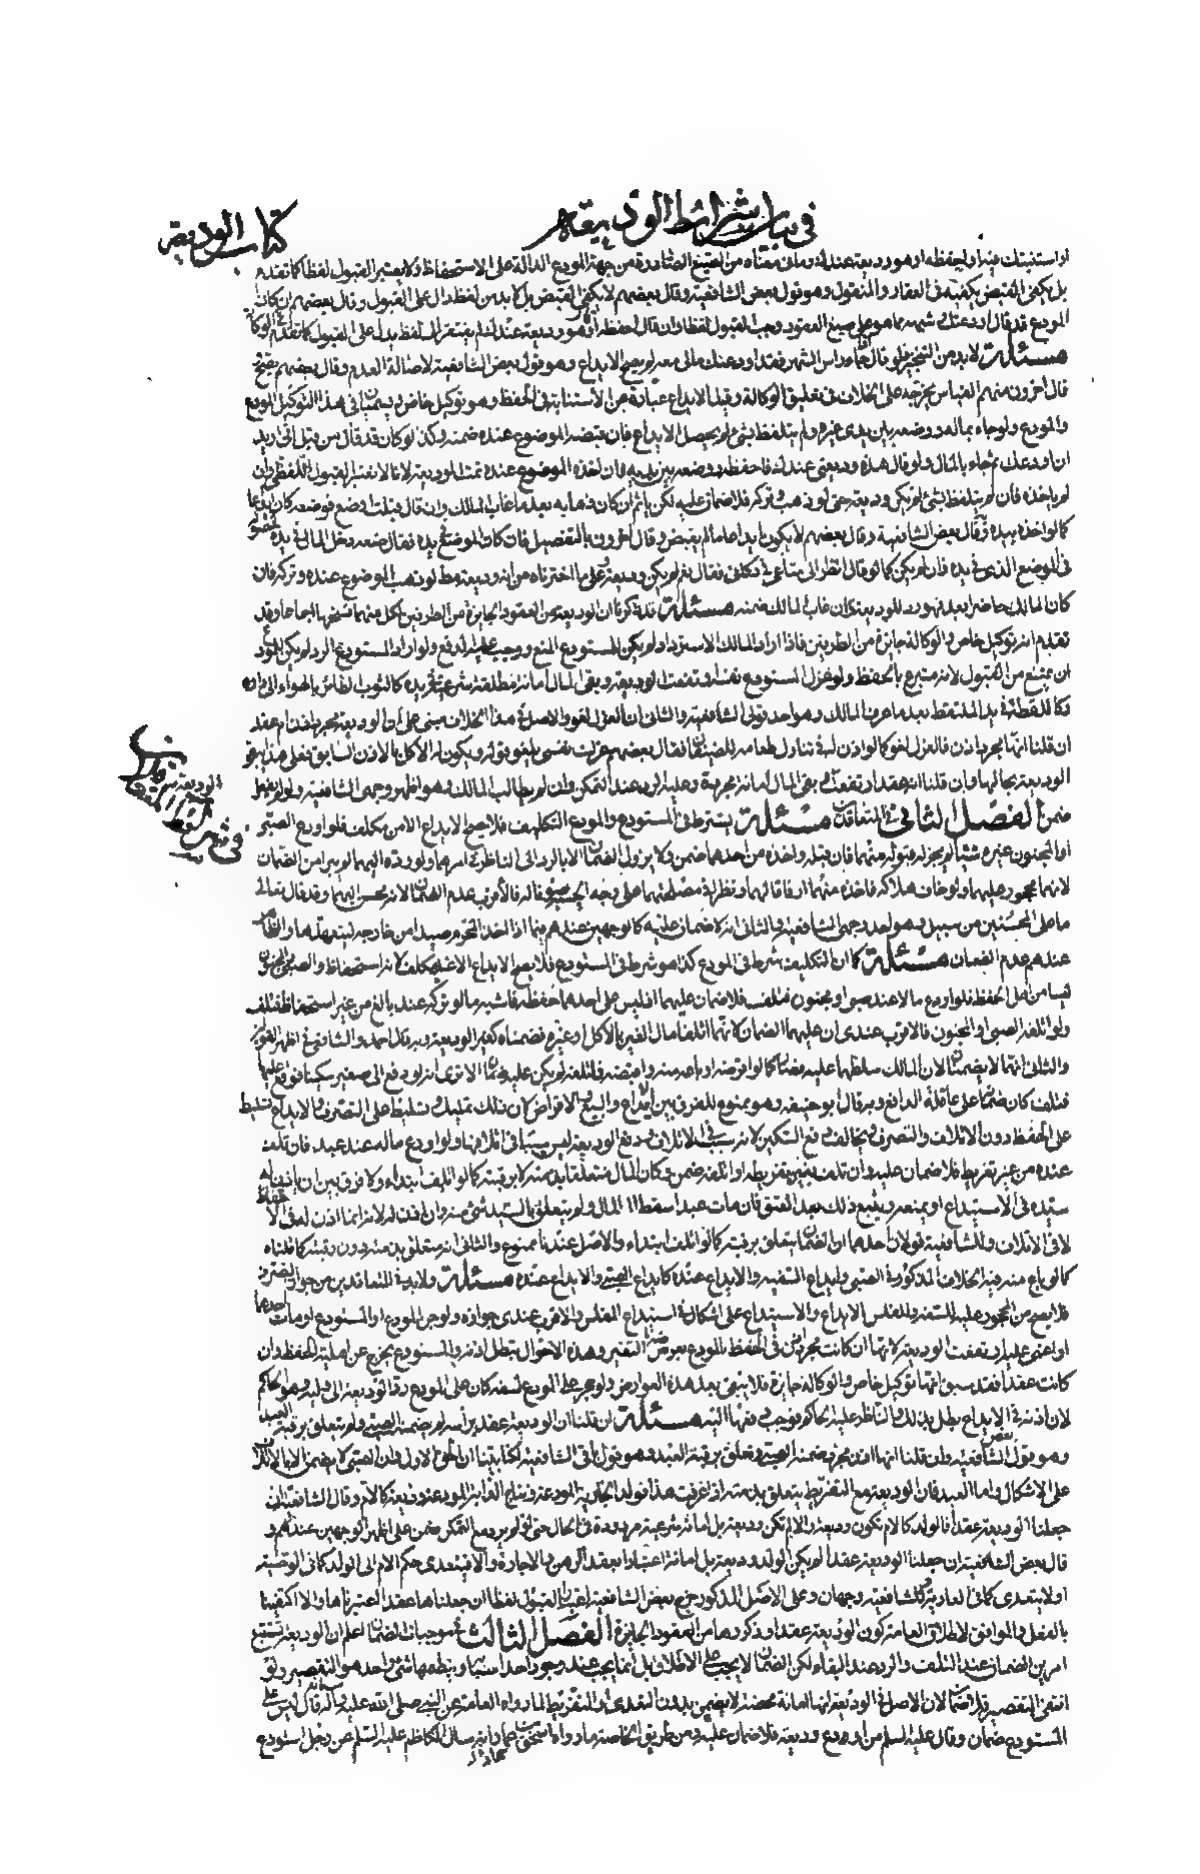 في بيان شرائط الوديعة
كتاب الوديعة
او استنبتك فيه او احفظه او هو وديعة عندك وما في معناه من الصيغ الصادرة من جهة المودع الدالة على الاستحفاظ ولا يعتبر القبول لفظا كما تقدم
بل يكفي القبض بكيفيته في العقار والمنقول وهو قول بعض الشافعية وقال بعضهم لا يكفي القبض بل لا بد من لفظ دال على القبول وقال بعضهم ان كان
المودع قد قال اودعتك وشبهه مما هو على صيغ العقود وجب القبول لفظا وان قال احفظه او هو وديعة عندك لم يفتقر الى لفظ يدل على القبول كما تقدم في الوكالة
مسئلة لا بد من التنجيز فلو قال اذا جاء راس الشهر فقد اودعتك مالي معه لم يصح الايداع وهو قول بعض الشافعية لاصالة العدم وقال بعضهم يصح
قال اخرون منهم القياس تخرجه على الخلاف في تعليق الوكالة وقيل الايداع عبارة عن الاستنابة في الحفظ وهو توكيل خاص ويسميان في هذا التوكيل المودع
والمودع ولو جاء بماله ووضعه بين يدي غيره ولم يتلفظ بشئ لم يحصل الايداع فان قبضه الموضوع عنده ضمنه وكذا لو كان قد قال من قبل اني اريد
ان اودعك ثم جاء بالمال ولو قال هذه وديعتي عندك فاحفظه ووضعه بين يديه فان اخذه الموضوع عنده تمت الوديعة لانا لا نعتبر القبول اللفظي وان
لم ياخذه فان لم يتلفظ بشئ لم يكن وديعة حتى لو ذهب وتركه فلا ضمان عليه لكن ياثم ان كان ذهابه بعد ما غاب المالك وان قال قبلت او ضع فوضعه كان ايداعا
كما لو اخذه بيده وقال بعض الشافعية وقال بعضهم لا يكون ايداعا ما لم يقبض وقال اخرون بالتفصيل فان كان الموضع في يده فقال ضعه دخل المال في يده لحصوله
في الموضع الذي في يده فان لم يكن كما لو قال انظر الى متاعي في دكاني فقال نعم لم يكن وديعة وعلى ما اخترناه من انه وديعة مطلقا لو ذهب الموضوع عنده وتركه فان
كان المالك حاضرا بعد فهو رد للوديعة وان غاب المالك ضمنه مسئلة قد ذكرنا ان الوديعة من العقود الجايزة من الطرفين لكل منهما فسخها اجماعا وقد
تقدم انه توكيل خاص والوكالة جايزة من الطرفين فاذا اراد المالك الاسترداد لم يكن للمستودع المنع ووجب عليه الدفع ولو اراد المستودع الرد لم يكن للمودع
ان يمتنع من القبول لانه متبرع بالحفظ ولو عزل المستودع نفسه ارتفعت الوديعة وبقي المال امانة مطلقة شرعية في يده كالثوب الطائر بالهواء الى داره
وكاللقطة في يد الملتقط بعد ما عرف المالك وهو احد قولي الشافعية والثاني ان العزل لغو والاصل في هذا الخلاف مبني على ان الوديعة مجرد اذن ام عقد
ان قلنا انها مجرد اذن فالعزل لغو كما لو اذن له في تناول طعامه للضيفان فقال بعضهم عزلت نفسي يلغو قوله ويكون له الاكل بالاذن السابق فعلى هذا يبقى
الوديعة بحالها وان قلنا انه عقد ارتفعت وبقي المال امانة مجردة وعليه الرد عند التمكن وان لم يطالب المالك وهو اظهر وجهي الشافعية ولو لم يفعل
ضمن الفصل الثاني في المتعاقدين مسئلة يشترط في المستودع والمودع التكليف فلا يصح الايداع الا من مكلف فلو اودع الصبي
في شرائط المتعاقدين
او المجنون غيره شيئا لم يجز له قبوله منهما فان قبله واخذه من احدهما ضمن ولا يزول الضمان الا بالرد الى الناظر في امرهما ولو رده اليهما لم يبرا من الضمان
لانهما محجور عليهما ولو خاف هلاكه فاخذه منهما ارفاقا لهما ونظرا في مصلحتهما على وجه الحسبة صونا له فالاقرب عدم الضمان لانه محسن اليهما وقد قال تعالى
ما على المحسنين من سبيل وهو احد وجهي الشافعية والثاني انه لا ضمان عليه كالوجهين عندهم فيما اذا اخذ المحرم صيدا من خارجه ليتعهده
عندهم عدم الضمان مسئلة كما ان التكليف شرط في المودع كذا هو شرط في المستودع فلا يصح الايداع الا عند مكلف لانه استحفاظ والصبي والمجنون
ليسا من اهل الحفظ فلو اودع مالا عند صبي او مجنون فتلف فلا ضمان عليهما اذ ليس على احدهما حفظه فاشبه ما لو تركه عند بالغ من غير استحفاظ فتلف
ولو اتلفه الصبي او المجنون فالاقرب عندي ان عليهما الضمان لانهما اتلفا مال الغير بالاكل او غيره فضمناه كغير الوديعة وبه قال احمد والشافعي في اظهر القولين
والثاني انهما لا يضمنان لان المالك سلطهما عليه فصار كما لو اقرضه او باعه منه واقبضه فاتلفه لم يكن عليه ضمان الا ترى انه لو دفع الى صغير سكينا فوقع عليها
فتلف كان ضمانه على عاقلة الدافع وبه قال ابو حنيفة وهو ممنوع للفرق بين الايداع والبيع والاقراض لان ذلك تمليك وتسليط على التصرف والايداع تسليط
على الحفظ دون الاتلاف والتصرف ويخالف دفع السكين لانه سبب في الاتلاف ودفع الوديعة ليس سببا في اتلافها ولو اودع ماله عند عبد فان تلف
عنده من غير تفريط فلا ضمان عليه وان تلف بتفريطه او اتلفه ضمن وكان المال متعلقا بذمته لا برقبته كما لو اتلف ابتداء ولا فرق بين ان ياذن له
سيده في الاستيداع او يمنعه ويتبع ذلك بعد العتق فان مات عبدا سقط المال ولم يتعلق بالسيد شئ منه وان اذن له لانه انما اذن له في الاحتفاظ
لا في الاتلاف وللشافعية قولان احدهما ان الضمان يتعلق برقبته كما لو اتلف ابتداء والاصل عندنا ممنوع والثاني انه متعلق بذمته دون رقبته كما قلناه
كما لو باع منه وفيه الخلاف المذكور في الصبي وايداع السفيه والايداع عنده كايداع الصبي والايداع عنده مسئلة ولا بد في المتعاقدين من جواز التصرف
فلا يصح من المحجور عليه للسفه وللمفلس الايداع والاستيداع على اشكال في استيداع المفلس والاقرب عندي جوازه ولو جن المودع او المستودع او مات احدهما
او اغمي عليه ارتفعت الوديعة لانها ان كانت مجرد اذن في الحفظ فالمودع بعرضة التغير وهذه الاحوال تبطل اذنه والمستودع يخرج عن اهلية الحفظ وان
كانت عقدا فقد سبق انها توكيل خاص والوكالة جايزة فلا يبقى بعد هذه العوارض ولو حجر على المودع لسفه كان على المودع رد الوديعة الى وليه وهو الحاكم
لان اذنه في الايداع بطل بذلك والناظر عليه الحاكم فوجب دفعها اليه مسئلة ان قلنا ان الوديعة عقد براسه لم يضمنه الصبي ولم يتعلق برقبة العبد
وهو قول بعض الشافعية وان قلنا انها اذن مجرد ضمنه الصبي وتعلق برقبة العبد وهو قول باقي الشافعية لكنا بينا ان الحق الاول وان الصبي لا يضمن الا بالاتلاف
على الاشكال واما العبد فان الوديعة مع التفريط يتعلق بذمته اذا عرفت هذا فولد الجارية المودعة ونتاج الدابة المودعة وديعة كالام وقال الشافعية ان
جعلنا الوديعة عقدا فالولد كالام تكون وديعة والا لم تكن وديعة بل امانة شرعية مردودة في الحال حتى لو لم يردها مع التمكن ضمن على اظهر الوجهين عندهم و
قال بعض الشافعية ان جعلنا الوديعة عقدا لم يكن الولد وديعة بل امانة اعتبارا بعقد الرهن والاجارة والا فيتعدى حكم الام الى الولد كما في الوصية
او لا يتعدى كما في العارية وللشافعية وجهان وعلى الاصل المذكور خرج بعض الشافعية اعتبار القبول لفظا ان جعلناها عقدا اعتبرناها والا اكتفينا
بالفعل والموافق لاطلاق العامة كون الوديعة عقدا وذكروها من العقود الجايزة الفصل الثالث في موجبات الضمان اعلم ان الوديعة تستتبع
امرين الضمان عند التلف والرد عند البقاء لكن الضمان لا يجب على الاطلاق بل انما يجب عند وجود احد اسبابه وينظمها شئ واحد هو التقصير ولو
انتفى التقصير فلا ضمان لان الاصل في الوديعة انها امانة محضة لا يضمن بدون التعدي او التفريط لما رواه العامة عن النبي صلى الله عليه وآله قال ليس على
المستودع ضمان وقال عليه السلم من اودع وديعة فلا ضمان عليه ومن طريق الخاصة ما رواه اسحق بن عمار انه سال الكاظم عليه السلم عن رجل استودع